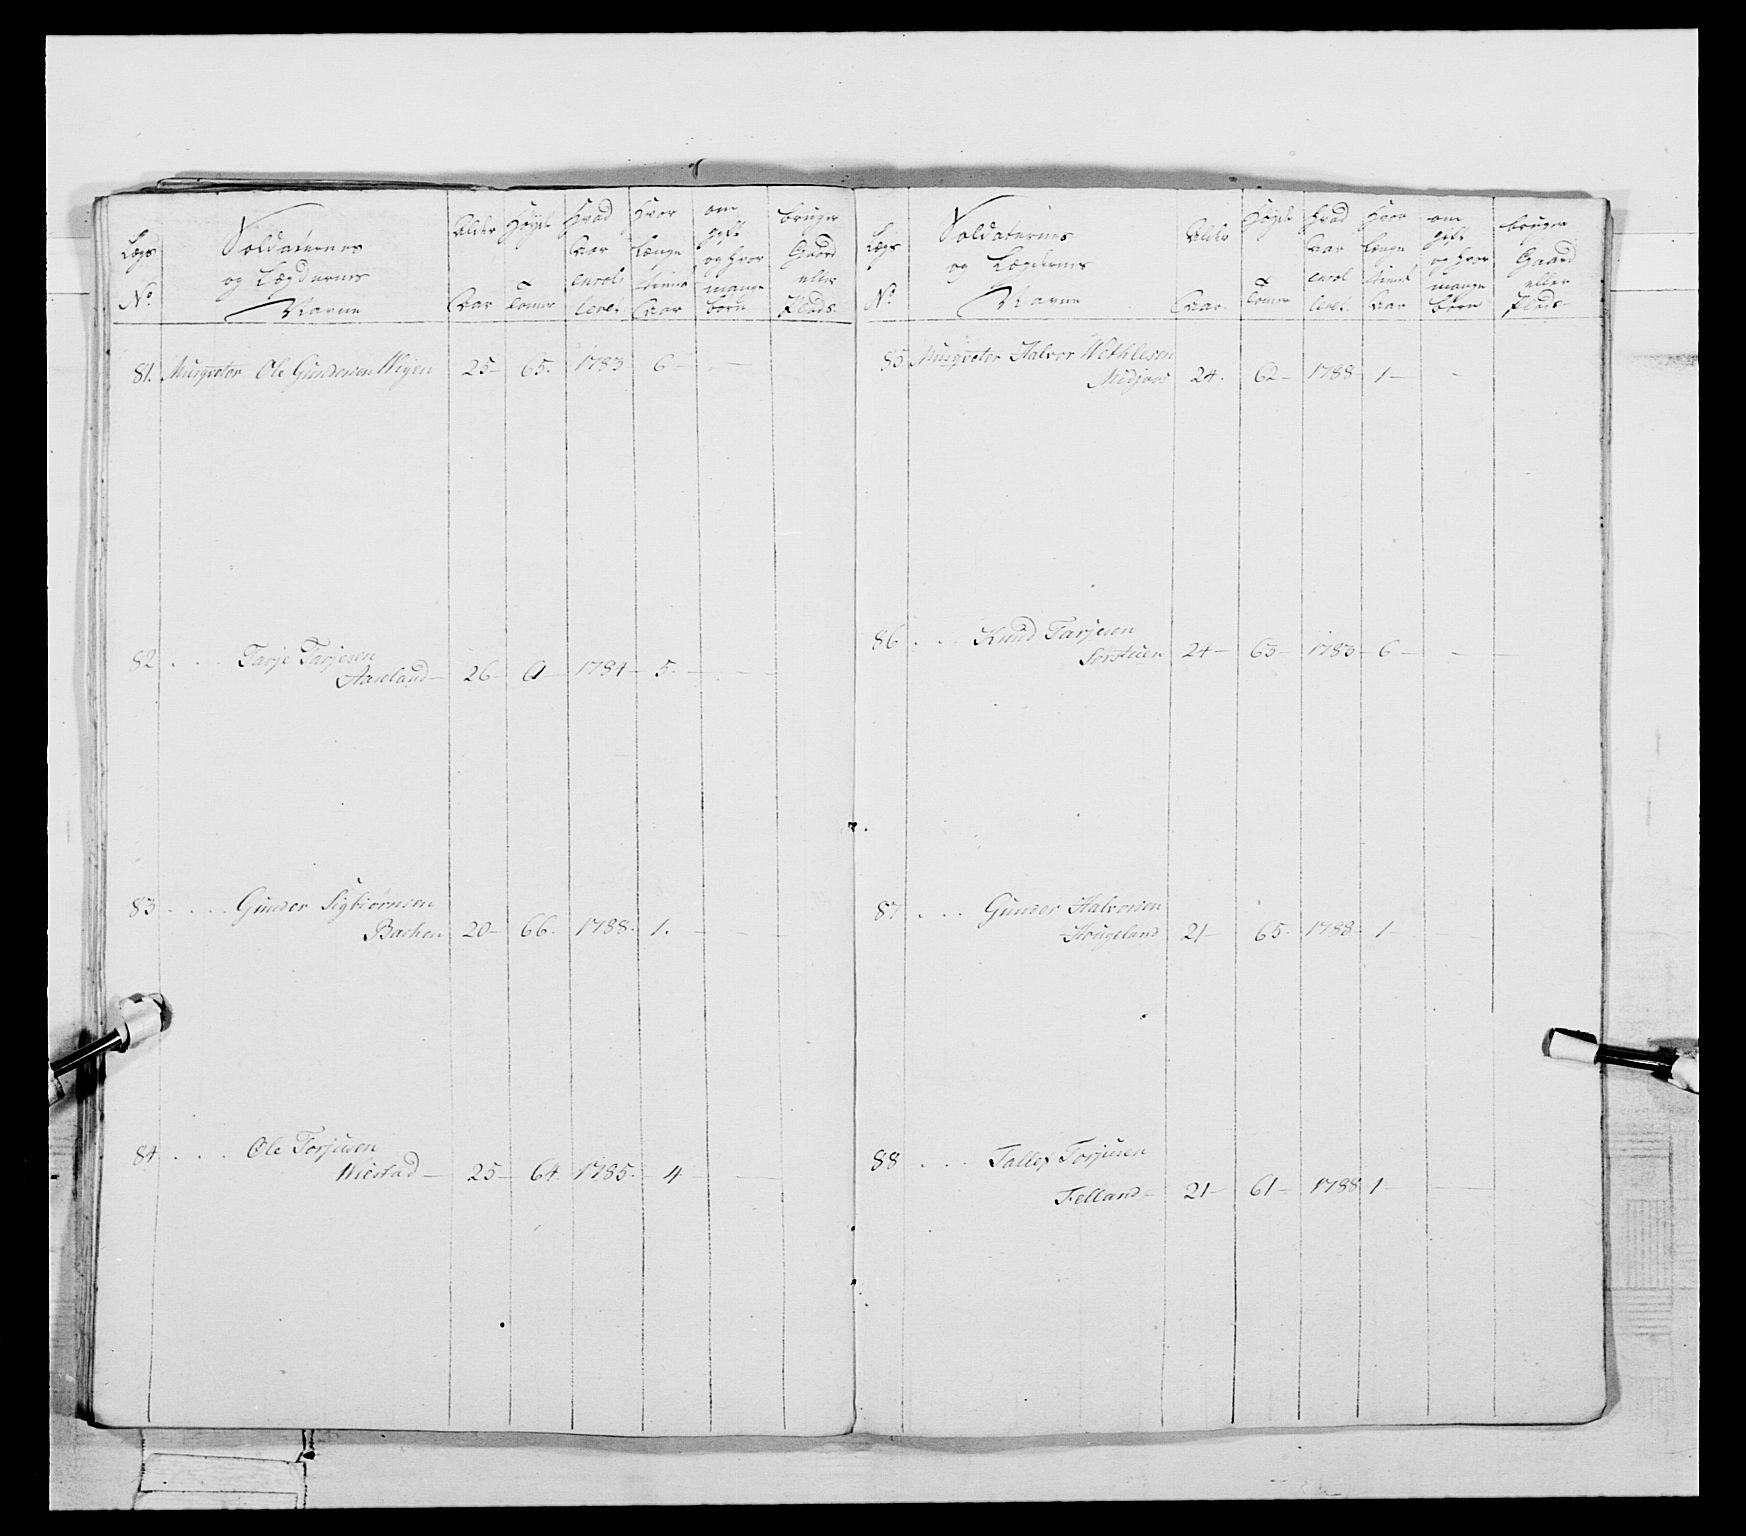 Lægs No
Soldaternes og Lægdernes Navne
Alder Aar
Høyde Tomer
Hvad Aar enrol leret
Hvor Længe tient Aar
om gift og hvor mange børn
bruger Gaard eller Plads
81. Musqveter Ole Gundersen Wigen 25 – 65. 1783 6 – –
82 . . . Tarje Tarjesen
Aaseland – 26 – 61 – 1784 – 5. – –
83 . . . . Gunder Sigbiørnsen
Bachen 20 – 66. 1788. 1. – – –
84 . . . Ole Torjusen
Wiestad – 25 – 64 1785. – 4 – –
Lægs No
Soldaternes og Lægdernes Navne
Alder Aar
Høyde Tomer
Hvad Aar enrol leret
Hvor Længe tient Aar
om gift og hvor mange børn
bruger Gaard eller Plads
85 Musqveter Halvor Wethlesen
24. 62 – 1788 – 1 – –
86 . . . Knud Tarjesen
24 – 63 – 1783 – 6 – – –
87 . . . Gunder Halvorsen
Hougeland 21 – 65. 1788 – 1 – – –
88 . . . Tallef Torjusen
Felland – 21 – 61 – 1788 1 – – –